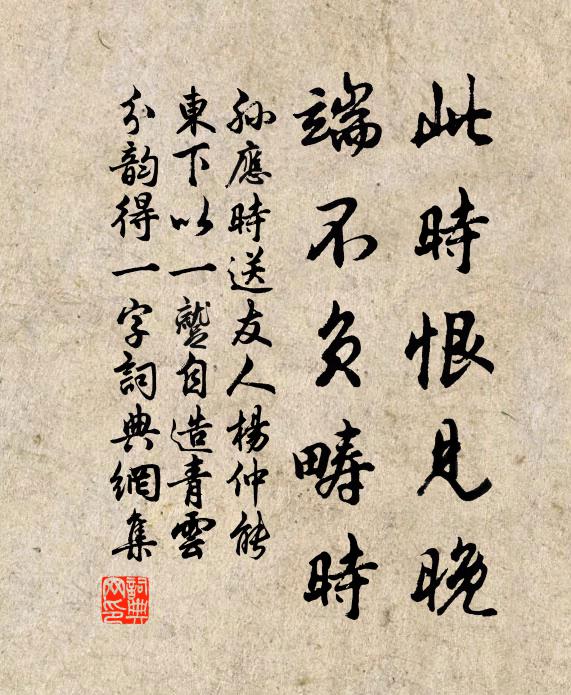 此時恨見晚
端不負疇時
孫應時送友人楊仲能
東下以一蹔自造青雲
分韵得一字詞典網集
詞典
网印